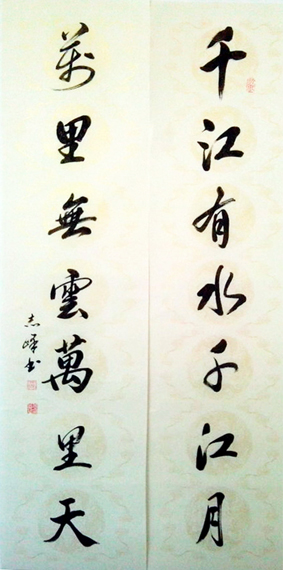 千江有水千江月
萬里無雲萬里天
志峰书